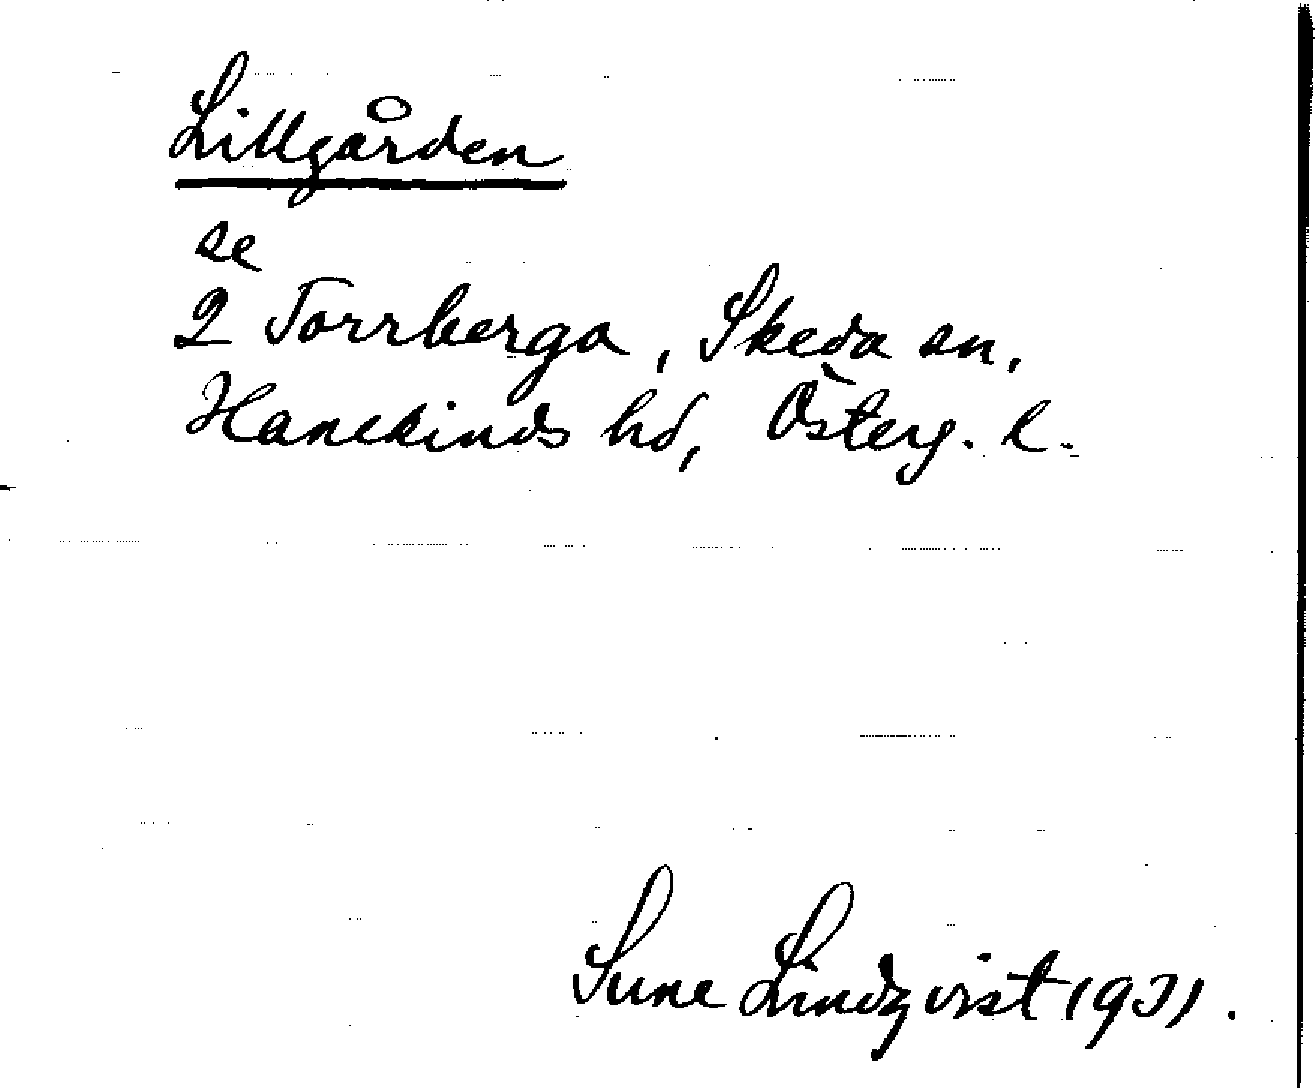 Lillgården
se
2 Torrberga, Skeda sn,
Hanekinds hd, Österg. l.
Sune Lindqvist 1931.